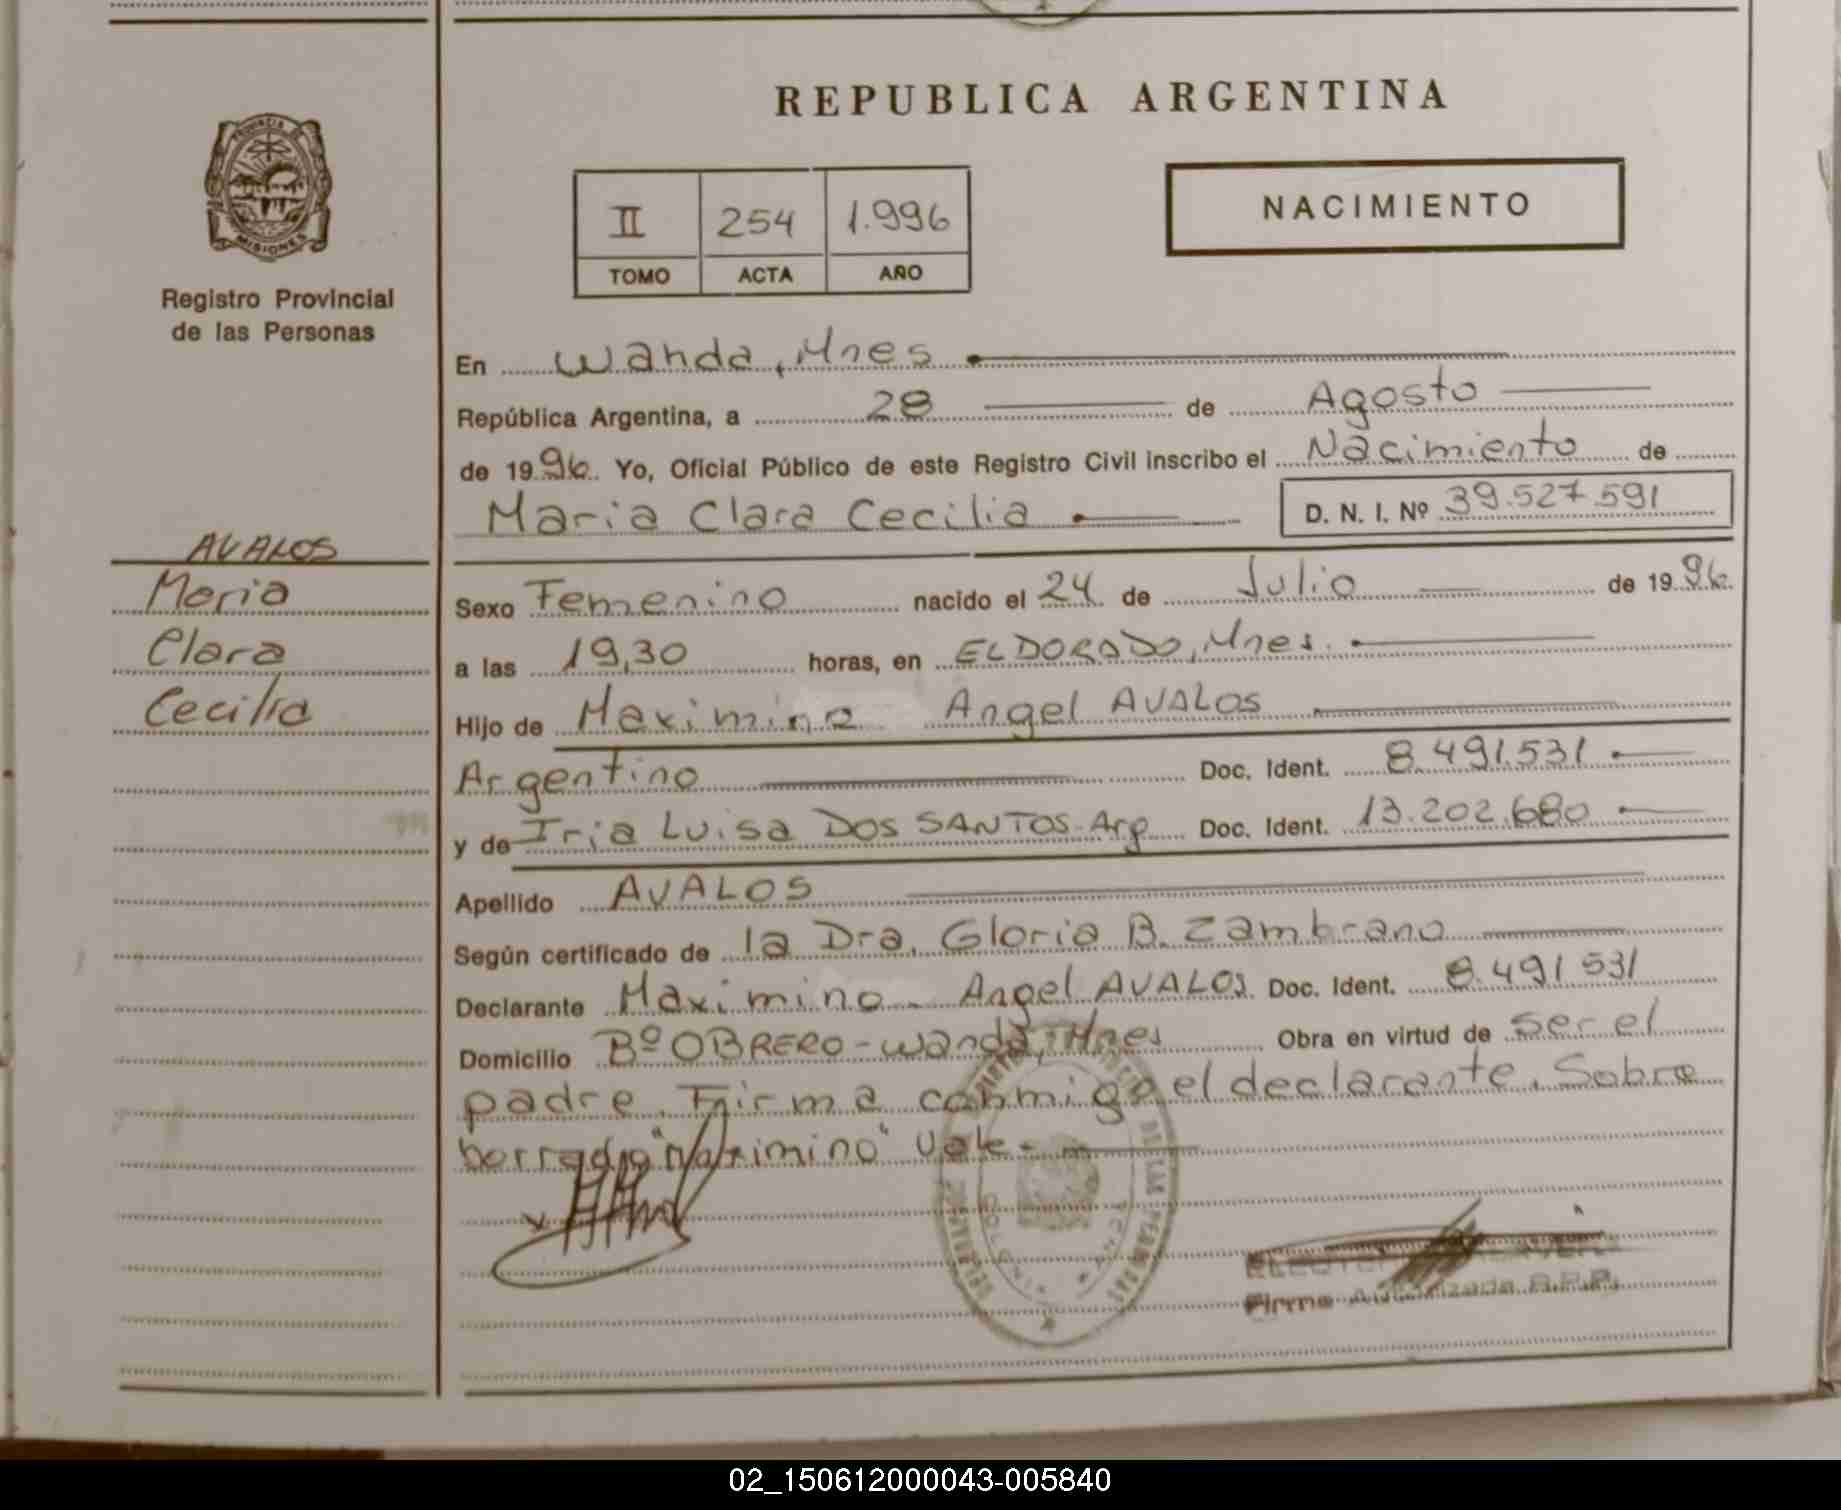 REPUBLICA ARGENTINA
PROVINCIA DE
MISIONES
Registro Provincial
de las Personas
II 254 1.996
TOMO ACTA AÑO
NACIMIENTO
En Wanda, Mnes
República Argentina, a 28 de Agosto
de 1996. Yo, Oficial Público de este Registro Civil inscribo el Nacimiento de
Maria Clara Cecilia D. N. I. Nº 39.527.591
AVALOS
Maria
Clara
Cecilia
Sexo Femenino nacido el 24 de Julio de 1996.
a las 19,30 horas, en ELDORADO, Mnes.
Hijo de Maximino Angel AVALOS
Argentino Doc. Ident. 8.491.531
y de Iria Luisa DOS SANTOS-Arg Doc. Ident. 13.202.680
Apellido AVALOS
Según certificado de la Dra. Gloria B. Zambrano
Declarante Maximino Angel AVALOS. Doc. Ident. 8.491 531
Domicilio Bº OBRERO - Wanda, Mnes Obra en virtud de ser el
padre. Firma conmigo el declarante. Sobre
borrado "Maximino" Vale-
DE LAS PERSONAS
Firma Autorizada R.P.P.
02_150612000043-005840